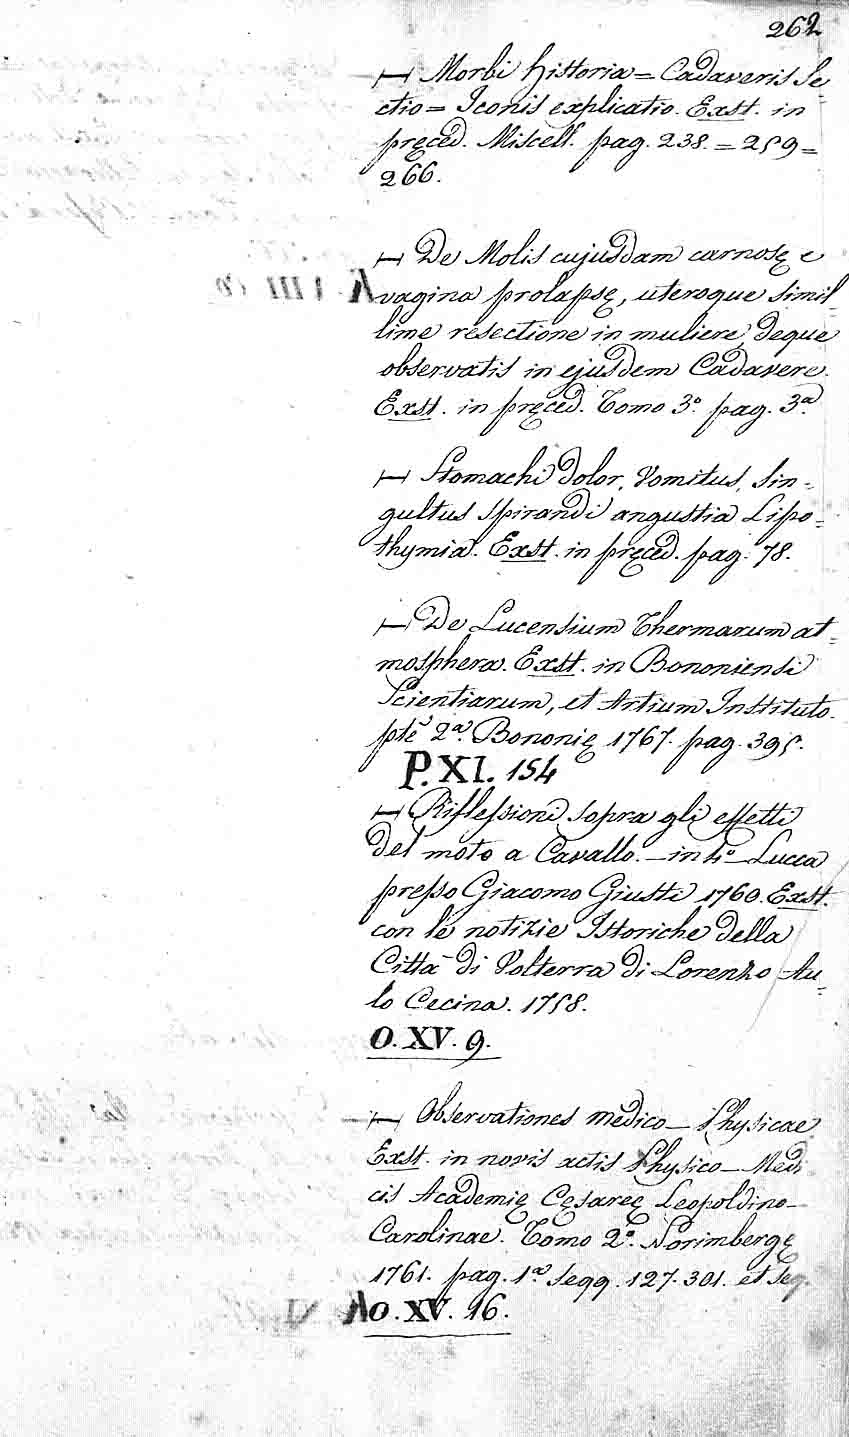 262
— Morbi Historia = Cadaveris Se-
ctio = Iconis explicatio. Exst. in
pręced. Miscell. pag. 238. = 259 =
266.
— De Molis cujusdam carnosę e
vagina prolapsę, uteroque simil-
lime resectione in muliere, deque
observatis in ejusdem Cadavere.
Exst. in pręced. Tomo 3.º pag. 3.ª
— Stomachi dolor, Vomitus, Sin-
gultus spirandi angustia Lipo-
thymia. Exst. in pręced. pag. 78.
— De Lucensium Thermarum at-
mosphera. Exst. in Bononiensi
Scientiarum, et Artium Instituto.
pte 2.ª Bononię 1767. pag. 395.
P. XI. 154
— Riflessioni sopra gli effetti
del moto a Cavallo. — in 4.º Lucca
presso Giacomo Giusti 1760. Exst.
con le notizie Istoriche della
Città di Volterra di Lorenzo Au-
lo Cecina. 1758.
O. XV. 9.
— Observationes medico — Physicae
Exst. in novis actis Physico — Medi
cis Academię Cęsareę Leopoldino —
Carolinae. Tomo 2.º Norimbergę
1761. pag. 1.ª seqq. 127. 301. et seq.
O. XV. 16.